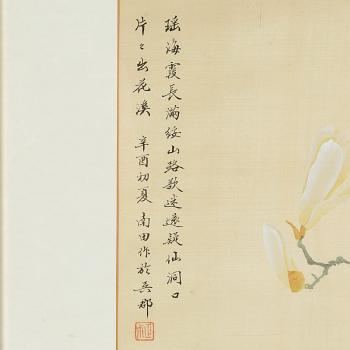 瑤海霞長滿綏山路欲迷遠疑仙洞口
片〻出花溪 辛酉初夏南田作於吳郡